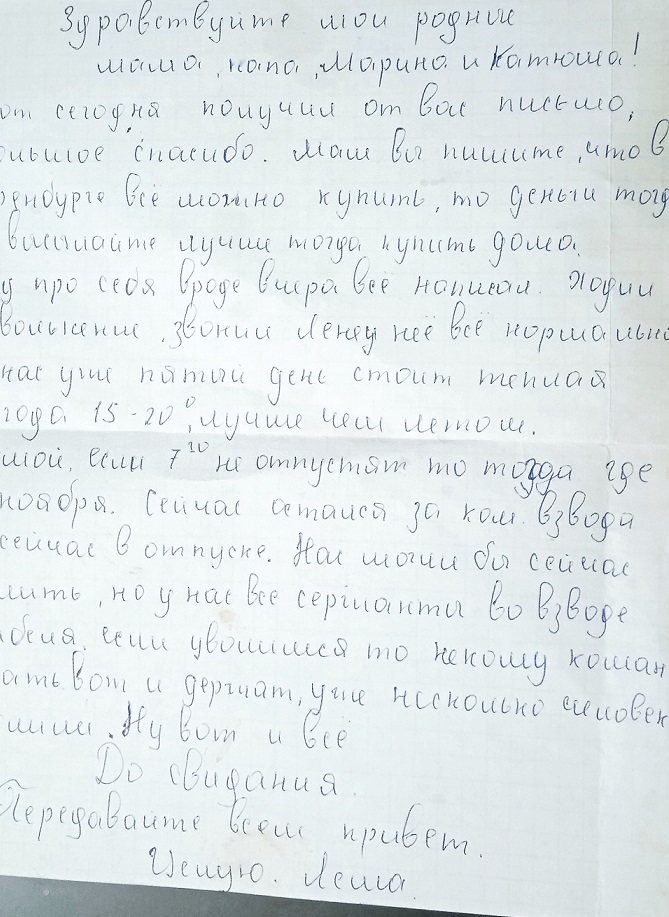 Здравствуйте мои родные
мама, папа, Марина и Катюша!
от сегодня получил от вас письмо,
ольшое спасибо. Мам вы пишите, что в
енбурге всё можно купить, то деньги тогд
высылайте лучше тогда купить дома.
у про себя вроде вчера всё написал. Ходил
вольнение, звонил Лене у неё всё нормально
нас уже пятый день стоит теплая
года 15-20°, лучше чем летом.
мой, если 7го не отпустят то тогда где
ноября. Сейчас остался за ком. взвода
сейчас в отпуске. Нас могли бы сейчас
лить, но у нас все сержанты во взводе
беля, если уволимся то некому коман
ать вот и держат, уже несколько человек
лили. Ну вот и всё
До свидания.
Передавайте всем привет.
Целую. Леша.